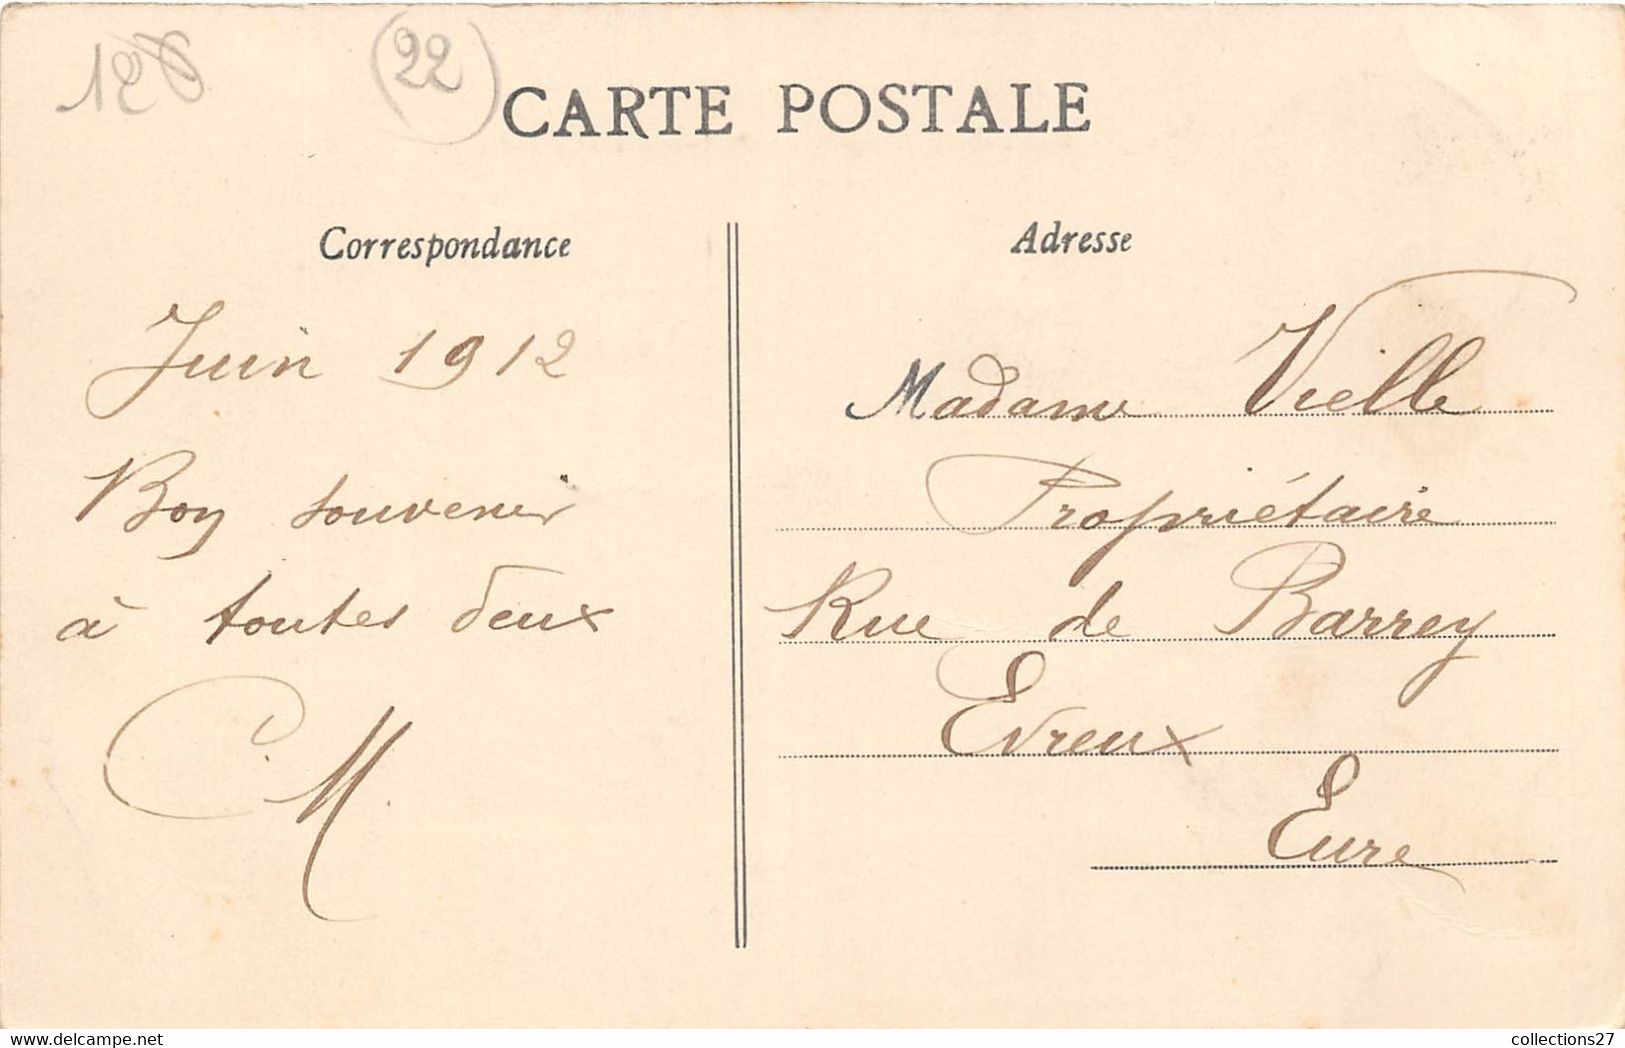 (22)
CARTE POSTALE
Correspondance
Juin 1912
Bon souvenir
à toutes deux
C. M.
Adresse
Madame Vielle
Propriétaire
Rue de Barrey
Evreux
Eure
collections27